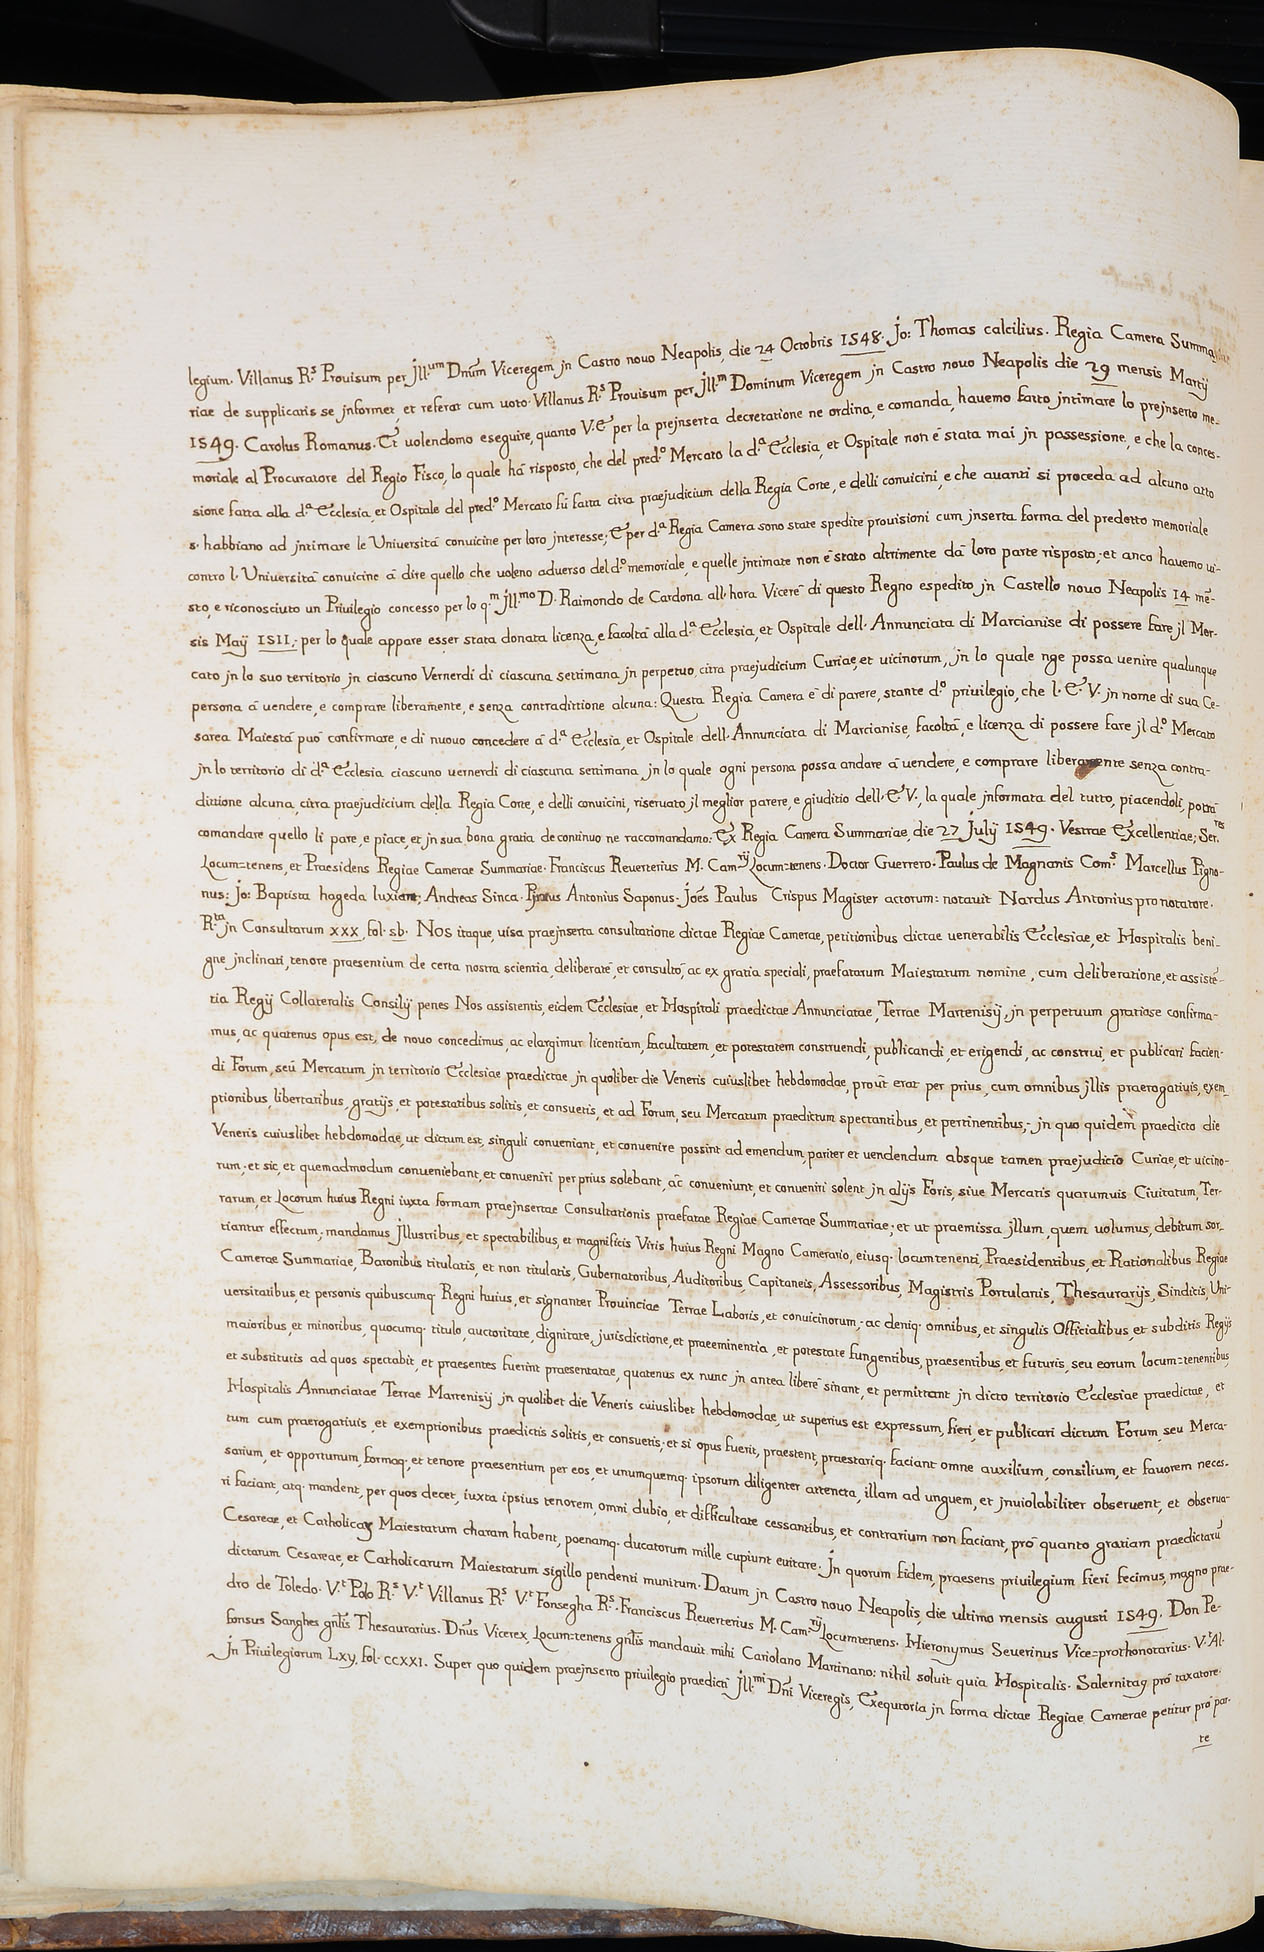 legium. Villanus R.s Prouisum per jll.um Dnũm Viceregem jn Castro nouo Neapolis, die 24 Octobris 1548. jo: Thomas calcilius. Regia Camera Summa
riae de supplicatis se jnformet, et referat cum uoto. Villanus R.s Prouisum per jll.m Dominum Viceregem jn Castro nouo Neapolis die 29 mensis Martij
1549. Carolus Romanus. Et uolendomo eseguire, quanto V.E per la prejnserta decretatione ne ordina, e comanda, hauemo fatto jntimare lo prejnserto me=
moriale al Procuratore del Regio Fisco, lo quale há risposto, che del pred.o Mercato la d.a Ecclesia, et Ospitale non é stata mai jn possessione, e che la conces-
sione fatta alla d.a Ecclesia, et Ospitale del pred.o Mercato fú fatta citra praejudicium della Regia Corte, e delli conuicini, e che auanti si proceda ad alcuno atto
s. habbiano ad jntimare le Uniuersitá conuicine per loro jnteresse; E per d.a Regia Camera sono state spedite prouisioni cum jnserta forma del predetto memoriale
contro l. Uniuersitá conuicine á dire quello che uoleno aduerso del d.o memoriale, e quelle jntimate non é stato altrimente dá loro parte risposto; et anco hauemo ui-
sto, e riconosciuto un Priuilegio concesso per lo q.m jll.mo D. Raimondo de Cardona all. hora Viceré di questo Regno espedito jn Castello nouo Neapolis 14 mẽ-
sis Maÿ 1511; per lo quale appare esser stata donata licenza, e facoltá alla d.a Ecclesia, et Ospitale dell. Annunciata di Marcianise di possere fare jl Mer-
cato jn lo suo territorio jn ciascuno Vernerdi di ciascuna settimana jn perpetuo, citra praejudicium Curiae, et uicinorum, jn lo quale nge possa uenire qualunque
persona á uendere, e comprare liberamente, e senza contradittione alcuna: Questa Regia Camera é di parere, stante d.o priuilegio, che l. E. V. jn nome di sua Ce-
sarea Maiestá puó confirmare, e di nuouo concedere á d.a Ecclesia, et Ospitale dell. Annunciata di Marcianise, facoltá, e licenza di possere fare jl d.o Mercato
jn lo territorio di d.a Ecclesia ciascuno uernerdi di ciascuna settimana, jn lo quale ogni persona possa andare á uendere, e comprare liberamente senza contra-
dittione alcuna, citra praejudicium della Regia Corte, e delli conuicini, riseruato jl meglior parere, e giuditio dell. E V., la quale jnformata del tutto, piacendoli, potrá
comandare quello li pare, e piace, et jn sua bona gratia de continuo ne raccomandamo: Ex Regia Camera Summariae, die 27 julij 1549. Vestrae Excellentiae; Ser.res
Locum=tenens, et Praesidens Regiae Camerae Summariae. Franciscus Reuerterius M. Cam.rij Locum=tenens. Doctor Guerrero. Paulus de Magnanis Com.s Marcellus Pigno-
nus: jo: Baptista hageda Andreas Sinca. Antonius Saponus. joẽs Paulus Crispus Magister actorum: notauit Nardus Antonius pro notatore.
R.ta jn Consultarum xxx, fol. sb. Nos itaque, uisa praejnserta consultatione dictae Regiae Camerae, petitionibus dictae uenerabilis Ecclesiae, et Hospitalis beni-
gne jnclinati, tenore praesentium de certa nostra scientia, deliberaté, et consultó, ac ex gratia speciali, praefatarum Maiestatum nomine, cum deliberatione, et assistẽ-
tia Regij Collateralis Consilij penes Nos assistentis, eidem Ecclesiae, et Hospitali praedictae Annunciatae, Terrae Martenisij, jn perpetuum gratiose confirma-
mus, ac quatenus opus est, de nouo concedimus, ac elargimur licentiam, facultatem, et potestatem construendi, publicandi, et erigendi, ac construi, et publicari facien-
di Forum, seú Mercatum jn territorio Ecclesiae praedictae jn quolibet die Veneris cuiuslibet hebdomodae, prout erat per prius, cum omnibus jllis praerogatiuis, exem
ptionibus, libertatibus, gratijs, et potestatibus solitis, et consuetis, et ad Forum, seu Mercatum praedictum spectantibus, et pertinentibus; jn quo quidem praedicto die
Veneris cuiuslibet hebdomodae, ut dictum est, singuli conueniant, et conuenire possint ad emendum, pariter et uendendum absque tamen praejudicio Curiae, et uicino-
rum; et sic, et quemadmodum conueniebant, et conueniri per prius solebant, ac conueniunt, et conueniri solent jn alijs Foris, siue Mercatis quarumuis Ciuitatum, Ter-
rarum, et Locorum huius Regni iuxta formam praejnsertae Consultationis praefatae Regiae Camerae Summariae; et ut praemissa jllum, quem uolumus, debitum sor-
tiantur effectum; mandamus jllustribus, et spectabilibus, et magnificis Viris huius Regni Magno Camerario, eiusq. locumtenenti, Praesidentibus, et Rationalibus Regiae
Camerae Summariae, Baronibus titulatis, et non titulatis, Gubernatoribus, Auditoribus, Capitaneis, Assessoribus, Magistris Portulanis, Thesaurarijs, Sinditis, Uni-
uersitatibus, et personis quibuscumq. Regni huius, et signanter Prouinciae Terrae Laboris, et conuicinorum; ac deniq. omnibus, et singulis Officialibus, et subditis Regijs
maioribus, et minoribus, quocumq. titulo, auctoritate, dignitate, jurisdictione, et praeeminentia, et potestate fungentibus, praesentibus, et futuris, seu eorum locum=tenentibus,
et substitutis ad quos spectabit, et praesentes fuerint praesentatae, quatenus ex nunc jn antea liberé sinant, et permittant jn dicto territorio Ecclesiae praedictae, et
Hospitalis Annunciatae Terrae Martenisij jn quolibet die Veneris cuiuslibet hebdomodae, ut superius est expressum, fieri, et publicari dictum Forum, seu Merca-
tum cum praerogatiuis, et exemptionibus praedictis solitis, et consuetis; et si opus fuerit, praestent, praestariq. faciant omne auxilium, consilium, et fauorem neces-
sarium, et opportunum, formaq. et tenore praesentium per eos, et unumquemq. ipsorum diligenter attenta, illam ad unguem, et jnuiolabiliter obseruent, et obserua-
ri faciant, atq. mandent, per quos decet, iuxta ipsius tenorem, omni dubio, et difficultate cessantibus, et contrarium non faciant, pró quanto gratiam praedictarũ
Cesareae, et Catholicae Maiestatum charam habent, poenamq. ducatorum mille cupiunt euitare. jn quorum fidem, praesens priuilegium fieri fecimus, magno prae-
dictarum Cesareae, et Catholicarum Maiestatum sigillo pendenti munitum. Datum jn Castro nouo Neapolis, die ultimo mensis augusti 1549. Don Pe-
dro de Toledo. V.t Polo R.s V.t Villanus R.s V.t Fonsegha R.s. Franciscus Reuerterius M. Cam.rij Locumtenens. Hieronymus Seuerinus Vice=prothonotarius. V.t Al-
fonsus Sanghes gñlis Thesaurarius. Dñus Vicerex, Locum=tenens gñlis mandauit mihi Cariolano Martinano: nihil soluit quia Hospitalis. Salernitaq pró taxatore.
jn Priuilegiorum Lxy, fol. ccxxi. Super quo quidem praejnserto priuilegio praedicti jll.mi Dñi Viceregis, Exequtoria jn forma dictae Regiae Camerae petitur pró par-
te